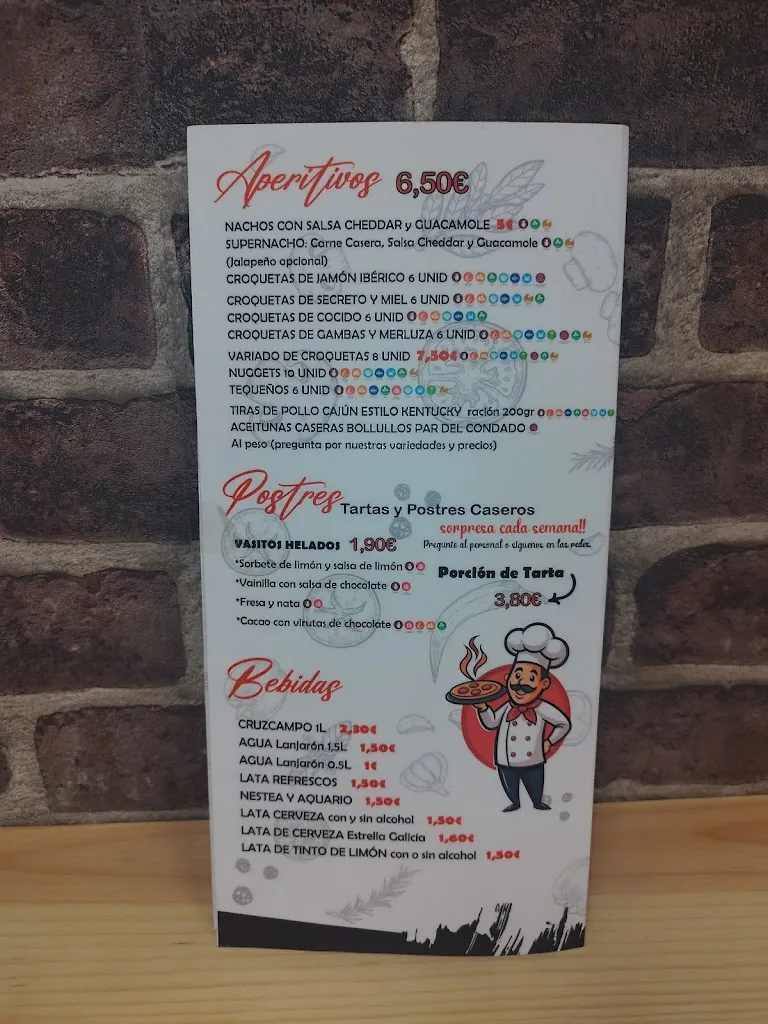 Aperitivos 6,50€
NACHOS CON SALSA CHEDDAR y GUACAMOLE 5€
SUPERNACHO: Carne Casera, Salsa Cheddar y Guacamole
(Jalapeño opcional)
CROQUETAS DE JAMÓN IBÉRICO 6 UNID
CROQUETAS DE SECRETO Y MIEL 6 UNID
CROQUETAS DE COCIDO 6 UNID
CROQUETAS DE GAMBAS Y MERLUZA 6 UNID
VARIADO DE CROQUETAS 8 UNID 7,50€
NUGGETS 10 UNID
TEQUEÑOS 6 UNID
TIRAS DE POLLO CAJÚN ESTILO KENTUCKY ración 200gr
ACEITUNAS CASERAS BOLLULLOS PAR DEL CONDADO
Al peso (pregunta por nuestras variedades y precios)
Postres Tartas y Postres Caseros
sorpresa cada semana!!
VASITOS HELADOS 1,90€
Pregunte al personal o síguenos en las redes
*Sorbete de limón y salsa de limón
Porción de Tarta
*Vainilla con salsa de chocolate
3,80€
*Fresa y nata
*Cacao con virutas de chocolate
Bebidas
CRUZCAMPO 1L 2,30€
AGUA Lanjarón 1,5L 1,50€
AGUA Lanjarón 0.5L 1€
LATA REFRESCOS 1,50€
NESTEA Y AQUARIO 1,50€
LATA CERVEZA con y sin alcohol 1,50€
LATA DE CERVEZA Estrella Galicia 1,60€
LATA DE TINTO DE LIMÓN con o sin alcohol 1,50€